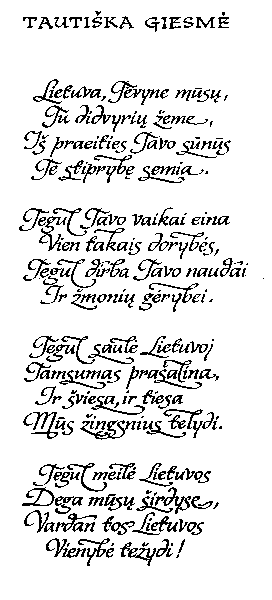 TAUTIŠKA GIESMĖ
Lietuva, Tėvyne mūsų,
Tu didvyrių žeme,
Iš praeities Tavo sūnūs
Te stiprybę semia.
Tegul Tavo vaikai eina
Vien takais dorybės,
Tegul dirba Tavo naudai
Ir žmonių gėrybei.
Tegul saulė Lietuvoj
Tamsumas prašalina,
Ir šviesa, ir tiesa
Mūs žingsnius telydi.
Tegul meilė Lietuvos
Dega mūsų širdyse,
Vardan tos Lietuvos
Vienybė težydi!